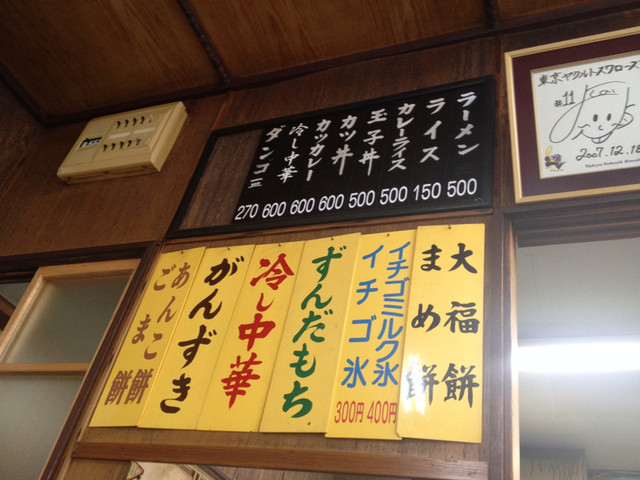 ラーメン 500
ライス 150
カレーライス 500
玉子丼 500
カツ丼 600
カツカレー 600
冷し中華 600
ダンゴ 三 270
大福餅
まめ餅
イチゴミルク氷 400円
イチゴ氷 300円
ずんだもち
冷し中華
がんずき
あんこ餅
ごま餅
東京ヤクルトスワローズ
#11
2007.12.18